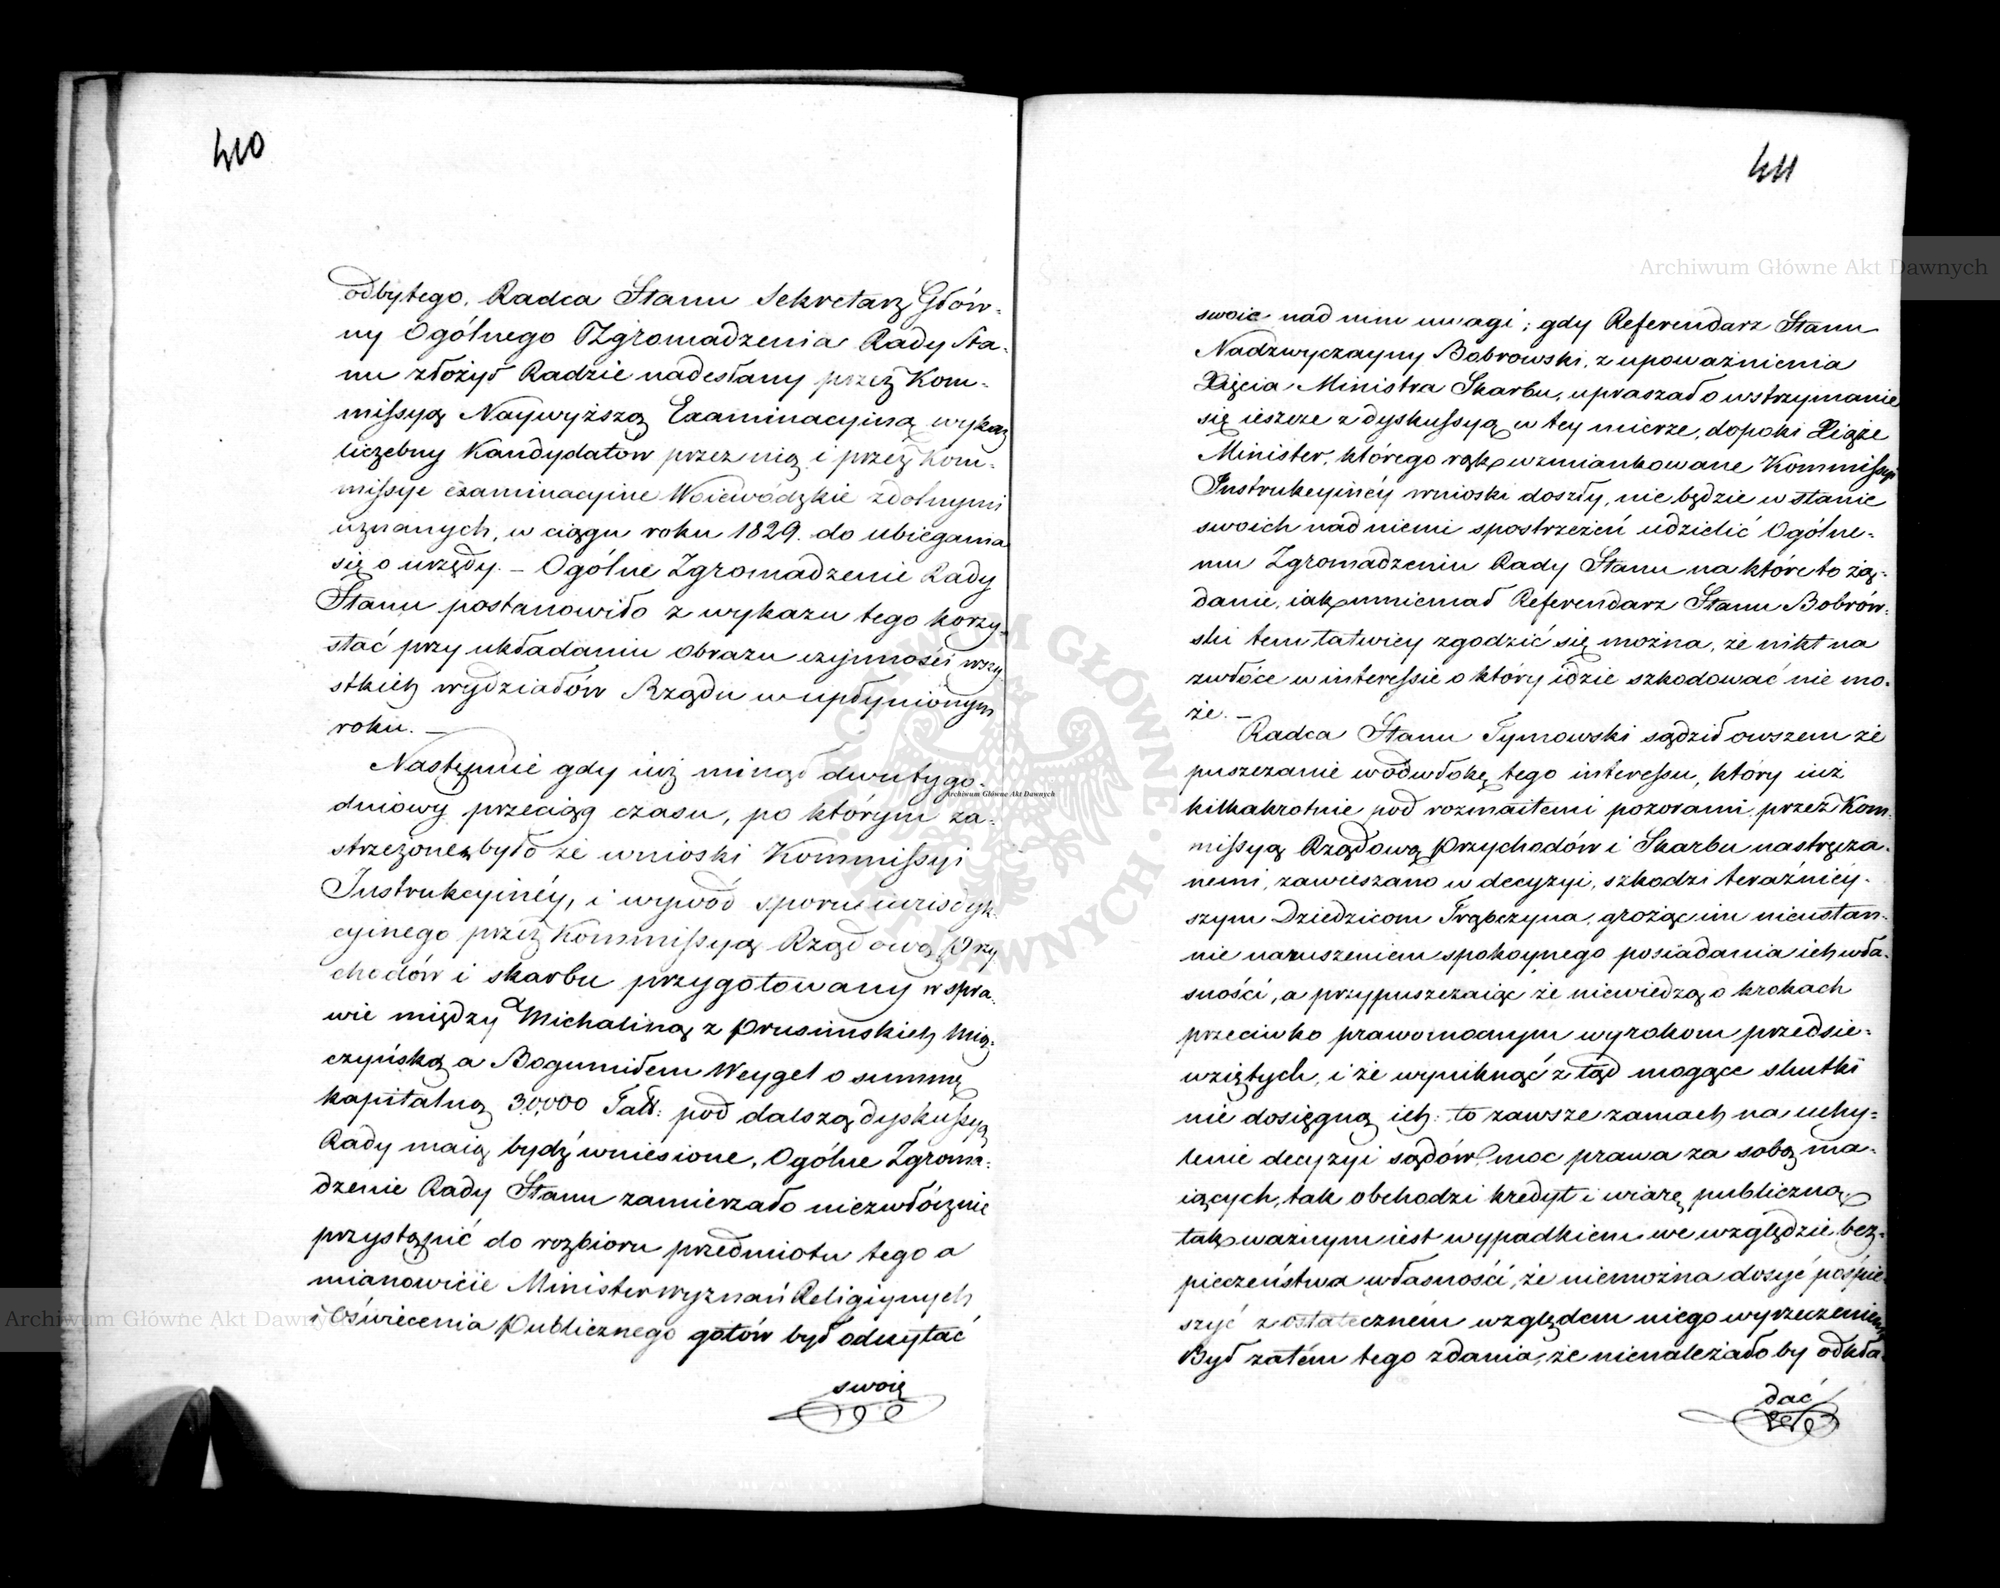 410
odbytego. Radca Stanu Sekretarz Głów-
ny Ogólnego Zgromadzenia Rady Sta-
nu złożył Radzie nadesłany przez Kom-
missyą Naywyższą Examinacyiną wykaz
liczebny Kandydatów przez nią i przez Kom-
missye examinacyine Woiewódzkie zdolnymi
uznanych, w ciągu roku 1829. do ubiegania
się o urzędy. — Ogólne Zgromadzenie Rady
Stanu postanowiło z wykazu tego korzy-
stać przy układaniu obrazu czynności wszy-
stkich wydziałów Rządu w upłynionym
roku. —
Następnie gdy iuż minął dwutygo-
dniowy przeciąg czasu, po którym za-
strzeżone było że wnioski Kommissyi
Instrukcyinéy, i wywód sporu iurisdyk-
cyinego przez Kommissyą Rządową Przy
chodów i skarbu przygotowany w spra-
wie między Michaliną z Prusimskich Mią-
czyńską a Bogumiłem Weygel o summę
kapitalną 30,000 Tall: pod dalszą dyskussyą
Rady maią bydź wniesione, Ogólne Zgroma-
dzenie Rady Stanu zamierzało niezwłócznie
przystąpić do rozbioru przedmiotu tego a
mianowicie Minister Wyznań Religiynych
i Oświecenia Publicznego gotów był odczytać
swoię
411
swoie nad nim uwagi; gdy Referendarz Stanu
Nadzwyczayny Bobrowski, z upoważnienia
Xięcia Ministra Skarbu, upraszał o wstrzymanie
się ieszcze z dyskussyą w tey mierze, dopóki Xiąże
Minister, którego rąk wzmiankowane Kommissyi
Instrukcyinéy wnioski doszły, nie będzie w stanie
swoich nad niemi spostrzeżeń udzielić Ogólne-
mu Zgromadzeniu Rady Stanu na które to żą-
danie, iak mniemał Referendarz Stanu Bobrów-
ski tem łatwiey zgodzić się można, że nikt na
zwłóce w interessie o który idzie szkodować nie mo-
że. —
Radca Stanu Tymowski sądził owszem że
puszczanie w odwłokę tego interessu, który iuż
kilkakrotnie pod rozmaitemi pozorami przez Kom-
missyą Rządową Przychodów i Skarbu nastręcza-
nemi, zawieszano w decyzyi, szkodzi teraźniey-
szym Dziedzicom Trąbczyna, grożąc im nieustan-
nie naruszeniem spokoynego posiadania ich wła-
sności, a przypuszczaiąc że niewiedzą o krokach
przeciwko prawomocnym wyrokom przedsie-
wziętych, i że wyniknąć z tąd mogące skutki
nie dosięgną ich: to zawsze zamach na uchy-
lenie decyzyi sądów moc prawa za sobą ma-
iących, tak obchodzi kredyt i wiarę publiczną,
tak ważnym iest wypadkiem we względzie bez-
pieczeństwa własności, że niemożna dosyć pośpie-
szyć z ostateczném względem niego wyrzeczeniem
Był zatém tego zdania, że nienależałoby odkła-
dać
Archiwum Główne Akt Dawnych
Archiwum Główne Akt Dawnych
Archiwum Główne Akt Dawnych
ARCHIWUM GŁÓWNE AKT DAWNYCH